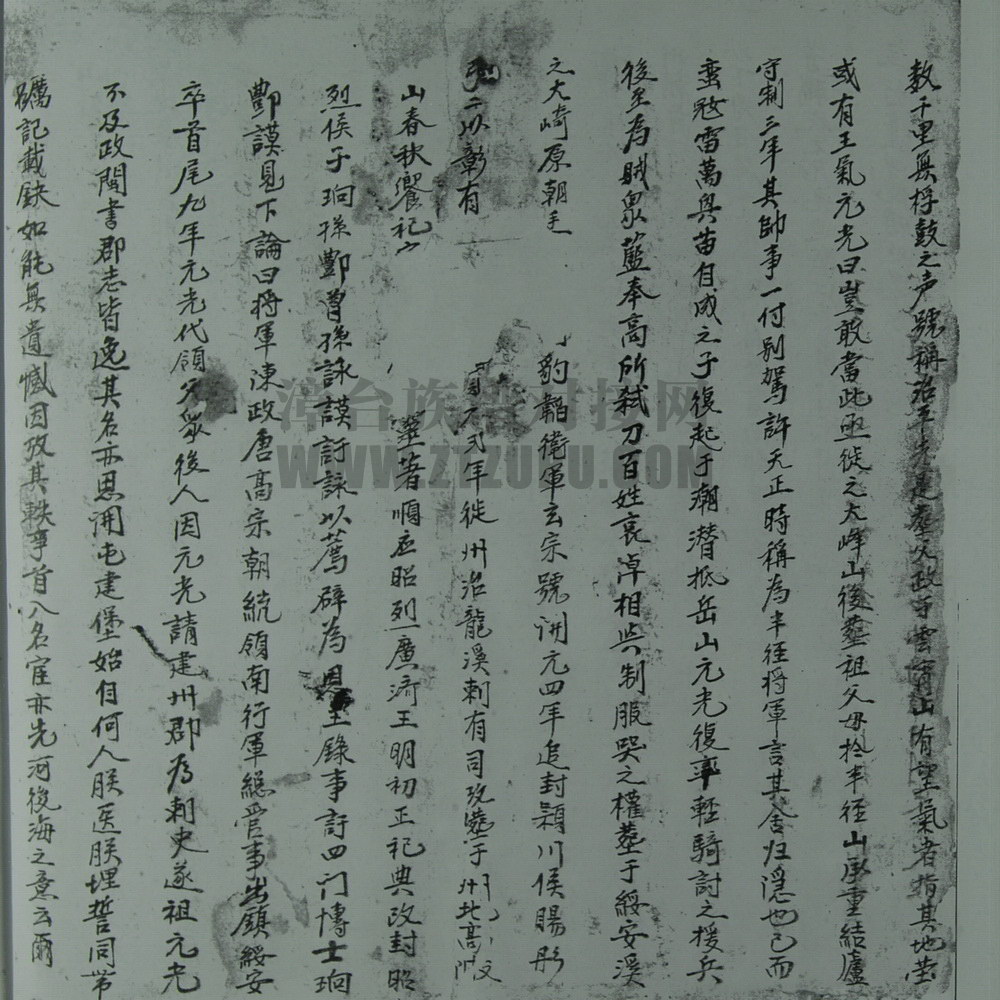 数千里無桴鼓之声號稱治平先是塟父政于雲霄山有望氣者指其地茔
或有王氣元光曰豈敢當此亟徙之大峰山後塟祖父母於半徑山承重結廬
守制三年其帥事一付别駕許天正時稱為半徑將軍言其舍归隱也已而
蛮寇雷萬興苗自成之子復起于潮潜抵岳山元光復率輕騎討之援兵
後至為賊眾藍奉高所弒刀百姓哀淖相與制服哭之權塟于綏安溪
之大峙原朝 豹韜衛軍玄宗號開元四年追封潁川侯賜彤
弓二以彰有 貞元弍年徙州治龍溪刺有司改塟于州北高
山春秋饗祀 塋著順应昭烈廣濟王明初正祀典改封昭
烈侯子珦孫酆曾孫詠謨訏詠以蔫辟為恩王錄事訏四门博士珦
酆謨見下論曰將軍凍政唐高宗朝統領南行軍總管事出鎮綏安
卒首尾九年元光代領父眾後人因元光請建州郡为刺史遂祖元光
不及政閩書郡志皆逸其名亦思開屯建堡始自何人朕医朕埋誓同带
礪記載缺如能無遺憾因攷其軼事首入名宦亦先河後海之意云爾
漳台族谱对接网
WWW.ZTZUPU.COM